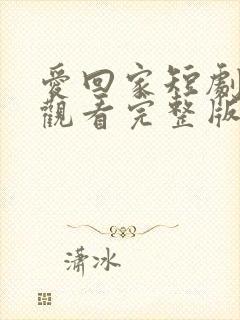 愛回家短劇
觀看完整版
瀟冰